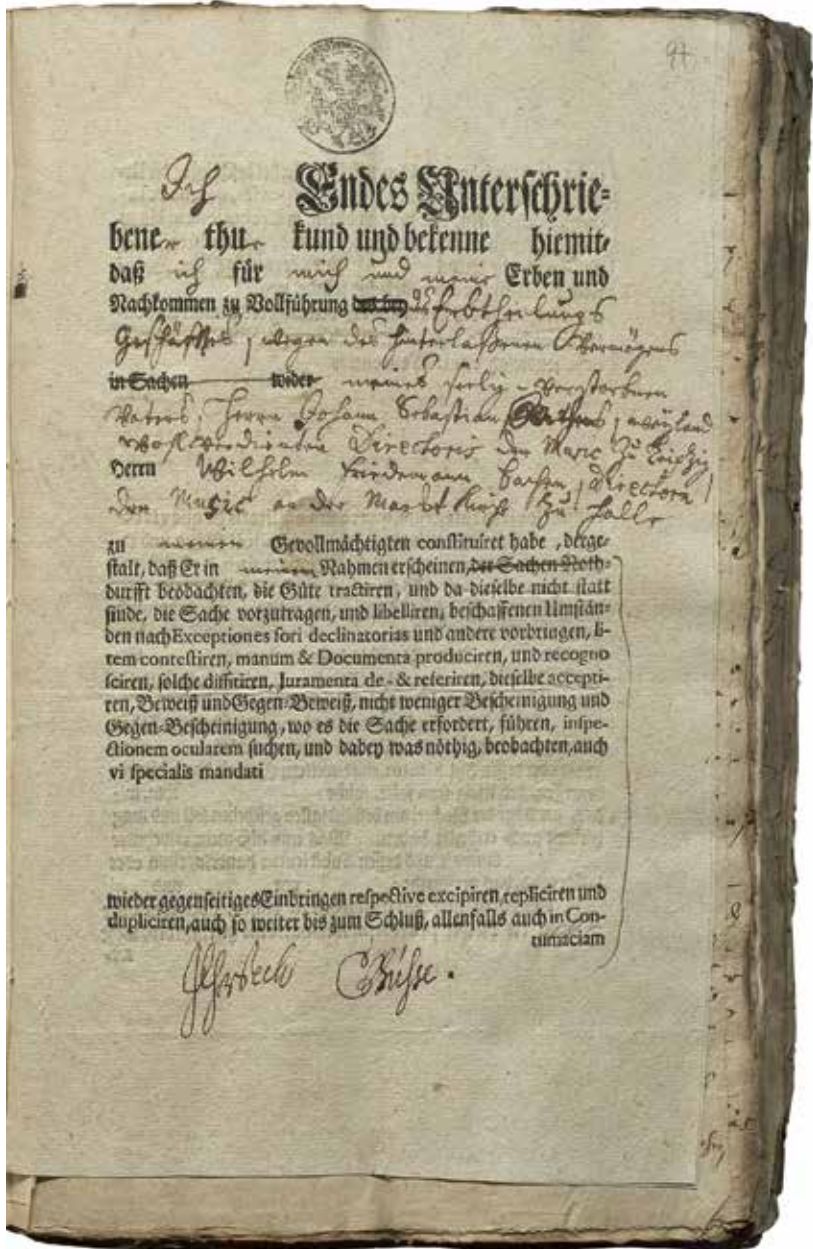 97
Ich Endes Unterschrie-
bener thue kund und bekenne hiemit,
daß ich für mich und meine Erben und
Nachkommen zu Vollführung des bey des Erbtheilungs
Geschäfftes, wegen des hinterlaßenen Vermögens
in Sachen wider meines seelig-verstorbnen
Vaters, Herrn Johann Sebastian Bachens, weyland
wohlverdienten Directoris der Music zu Leipzig
Herrn Wilhelm Friedemann Bachen, Directorn
der Music an der Marckt Kirche zu Halle
zu meinen Gevollmächtigten constituiret habe, derge-
stalt, daß Er in meinem Nahmen erscheinen, der Sachen Noth-
durfft beobachten, die Güte tractiren, und da dieselbe nicht statt
finde, die Sache vorzutragen, und libelliren, beschaffenen Umstän-
den nach Exceptiones fori declinatorias und andere vorbringen, li-
tem contestiren, manum & Documenta produciren, und recogno
sciren, solche diffitiren, Juramenta de- & referiren, dieselbe accepti-
ren, Beweiß und Gegen-Beweiß, nicht weniger Bescheinigung und
Gegen-Bescheinigung, wo es die Sache erfordert, führen, inspe-
ctionem ocularem suchen, und dabey was nöthig, beobachten, auch
vi specialis mandati
wieder gegenseitiges Einbringen respective excipiren, repliciren und
dupliciren, auch so weiter bis zum Schluß, allenfalls auch in Con-
tumaciam